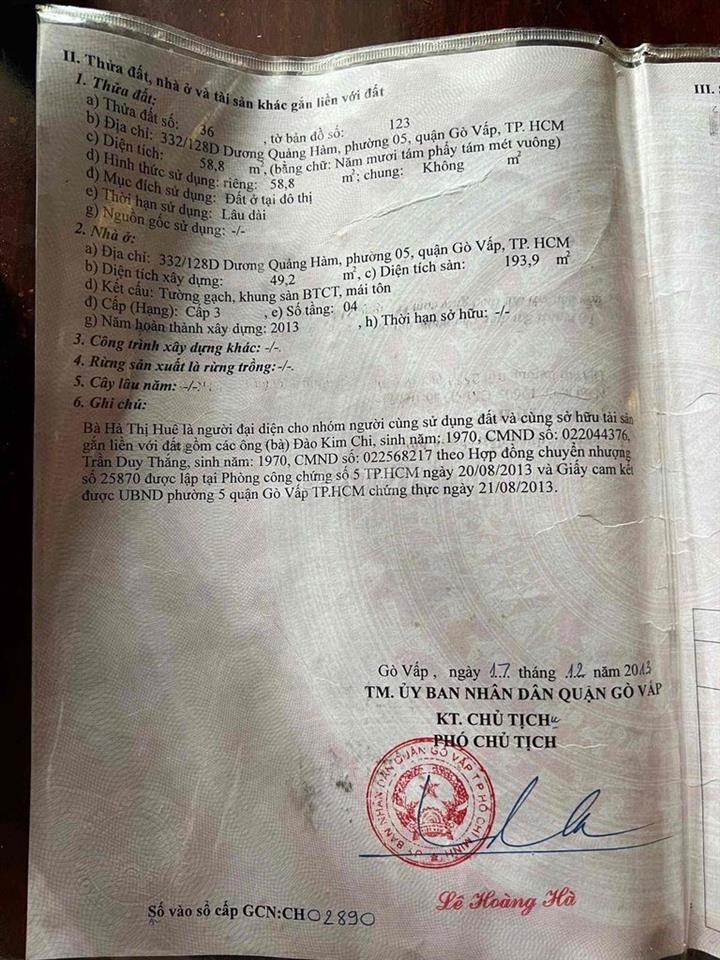 II. Thửa đất, nhà ở và tài sản khác gắn liền với đất
1. Thửa đất:
a) Thửa đất số: 36 , tờ bản đồ số: 123
b) Địa chỉ: 332/128D Dương Quảng Hàm, phường 05, quận Gò Vấp, TP. HCM
c) Diện tích: 58,8 m², (bằng chữ: Năm mươi tám phẩy tám mét vuông)
d) Hình thức sử dụng: riêng: 58,8 m²; chung: Không m²
đ) Mục đích sử dụng: Đất ở tại đô thị
e) Thời hạn sử dụng: Lâu dài
g) Nguồn gốc sử dụng: -/-
2. Nhà ở:
a) Địa chỉ: 332/128D Dương Quảng Hàm, phường 05, quận Gò Vấp, TP. HCM
b) Diện tích xây dựng: 49,2 m², c) Diện tích sàn: 193,9 m²
d) Kết cấu: Tường gạch, khung sàn BTCT, mái tôn
đ) Cấp (Hạng): Cấp 3 , e) Số tầng: 04
g) Năm hoàn thành xây dựng: 2013 , h) Thời hạn sở hữu: -/-
3. Công trình xây dựng khác: -/-.
4. Rừng sản xuất là rừng trồng: -/-.
5. Cây lâu năm: -/-.
6. Ghi chú:
Bà Hà Thị Huê là người đại diện cho nhóm người cùng sử dụng đất và cùng sở hữu tài sản
gắn liền với đất gồm các ông (bà) Đào Kim Chi, sinh năm: 1970, CMND số: 022044376,
Trần Duy Thăng, sinh năm: 1970, CMND số: 022568217 theo Hợp đồng chuyển nhượng
số 25870 được lập tại Phòng công chứng số 5 TP.HCM ngày 20/08/2013 và Giấy cam kết
được UBND phường 5 quận Gò Vấp TP.HCM chứng thực ngày 21/08/2013.
III.
Gò Vấp , ngày 17 tháng 12 năm 2013
TM. ỦY BAN NHÂN DÂN QUẬN GÒ VẤP
KT. CHỦ TỊCH
PHÓ CHỦ TỊCH
ỦY BAN NHÂN DÂN QUẬN GÒ VẤP TP HỒ CHÍ MINH
Lê Hoàng Hà
Số vào sổ cấp GCN:CH02890